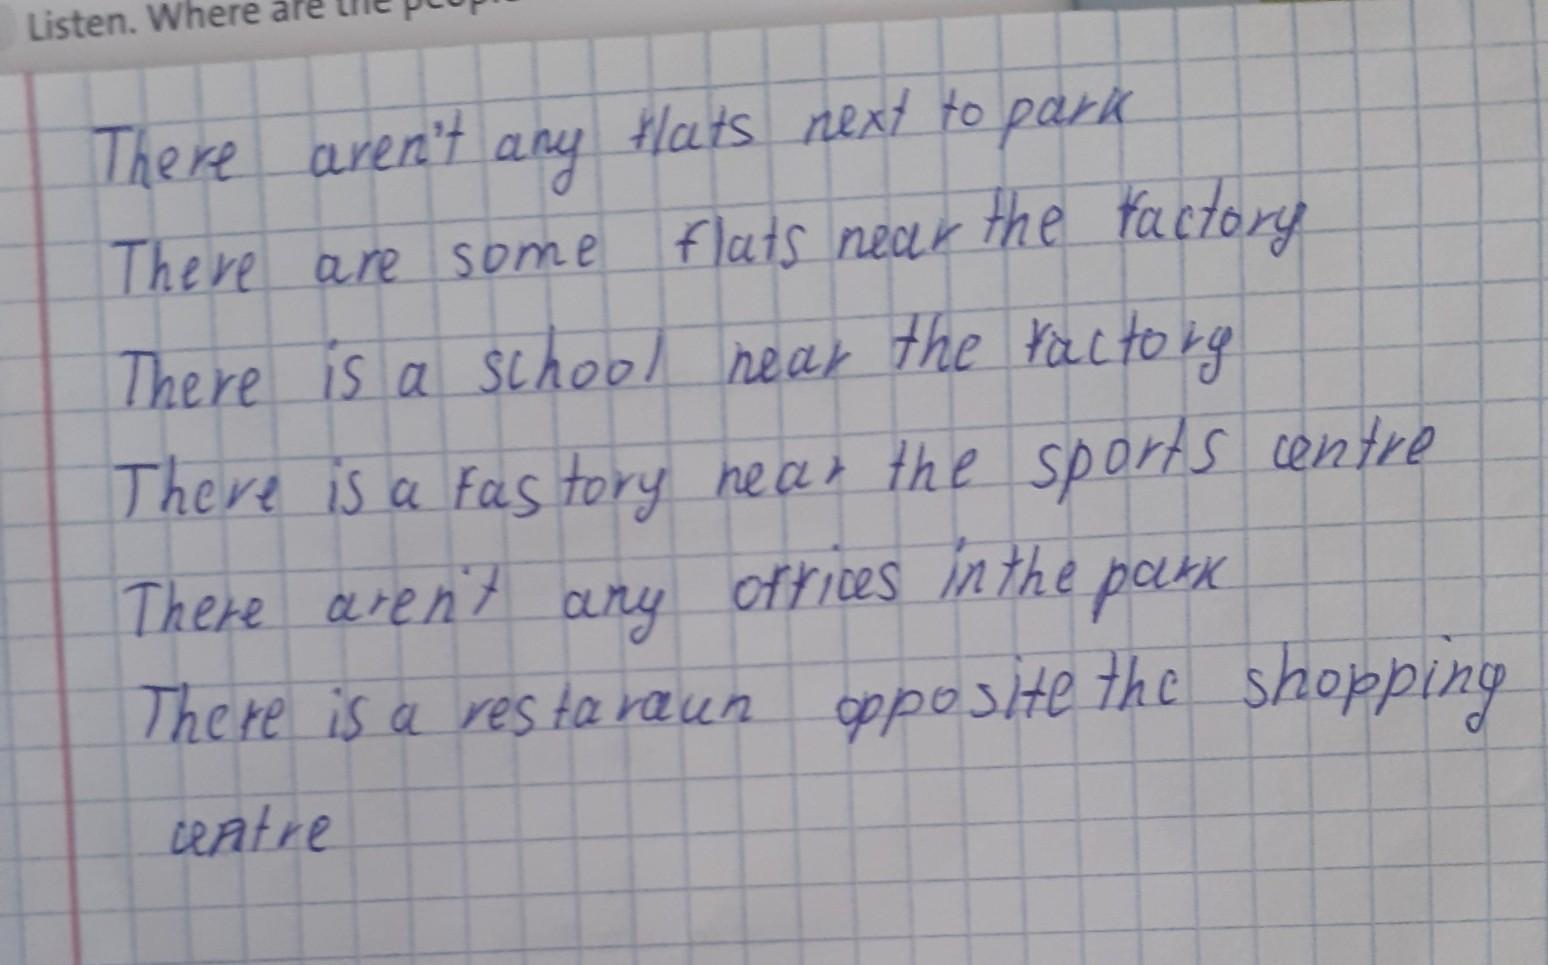 Listen. Where are the peop
There aren't any flats next to park
There are some flats near the factory
There is a school near the factory
There is a fastory near the sports centre
There aren't any offices in the park
There is a restaraun opposite the shopping
centre